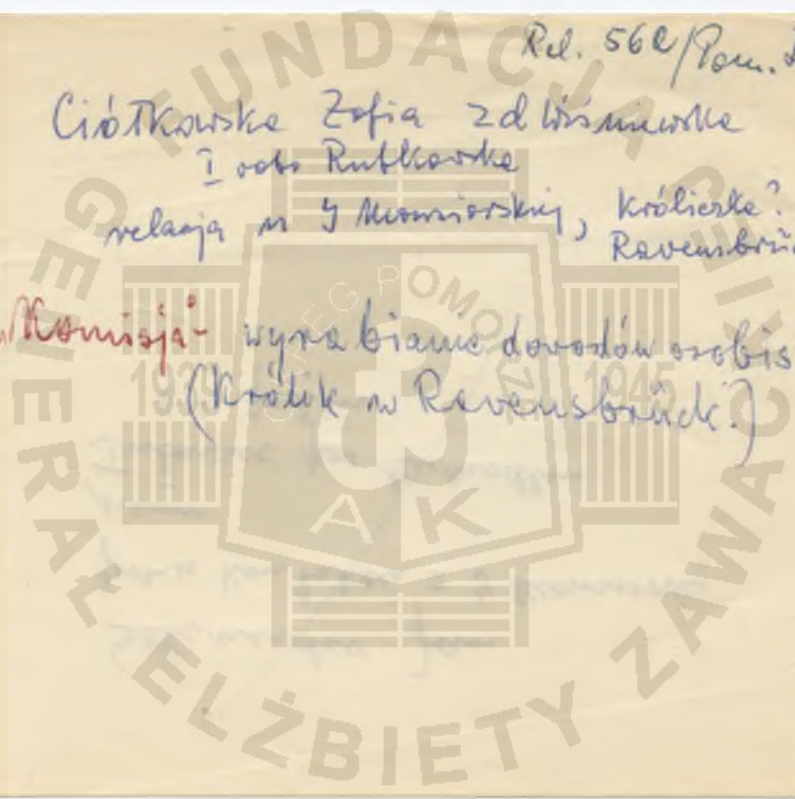 Rel. 562/Pom.
Ciółkowska Zofia zd Wiśniewska
I voto Rutkowska
relacja u J Mowiorskiej, Króliczka?
Ravensbrü
"Komisja" - wyrabianie dowodów osobis
(Królik w Ravensbrück.)
FUNDACJA GENERAŁ ELŻBIETY ZAWACKIEJ
POMORZE
1939 1945
AK